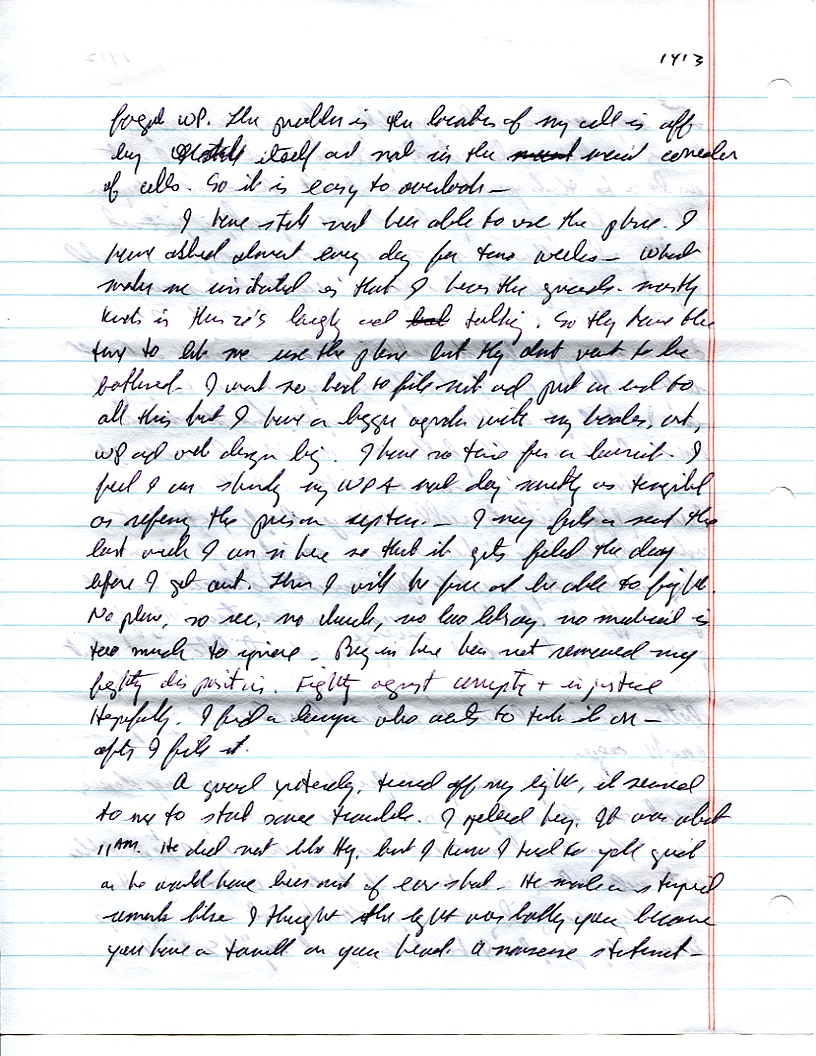 1413
forget WP. The problem is the location of my cell is off
by itself and not in the main corridor
of cells. So it is easy to overlook —
I have still not been able to use the phone. I
have asked almost every day for two weeks — What
makes me irritated is that I hear the guards. mostly
laugh and talking. So they have the
time to let me use the phone but they dont want to be
bothered. I want so bad to file suit and put an end to
all this but I have a bigger agenda with my books, art,
WP and web design biz. I have no time for a lawsuit. I
feel I am my WP + as tangible
as the prison system. — I may file a suit the
last week I am in here so that it gets filed the day
before I get out. Then I will be free and be able to fight.
No phone, no rec, no church, no law library, no medical is
too much to ignore — Being in here has not removed my
fighting disposition. Fighting against corruption + injustice
Hopefully, I find a lawyer who wants to take it on —
after I file it.
A guard yesterday, turned off my light, it seemed
to me to start some trouble. I yelled hey. It was about
11 AM. He did not like that, but I knew I had to yell quick
or he would have been out of ear shot. He made a stupid
remark like I thought the light was bothering you because
you have a towel on your head. A nonsense statement —